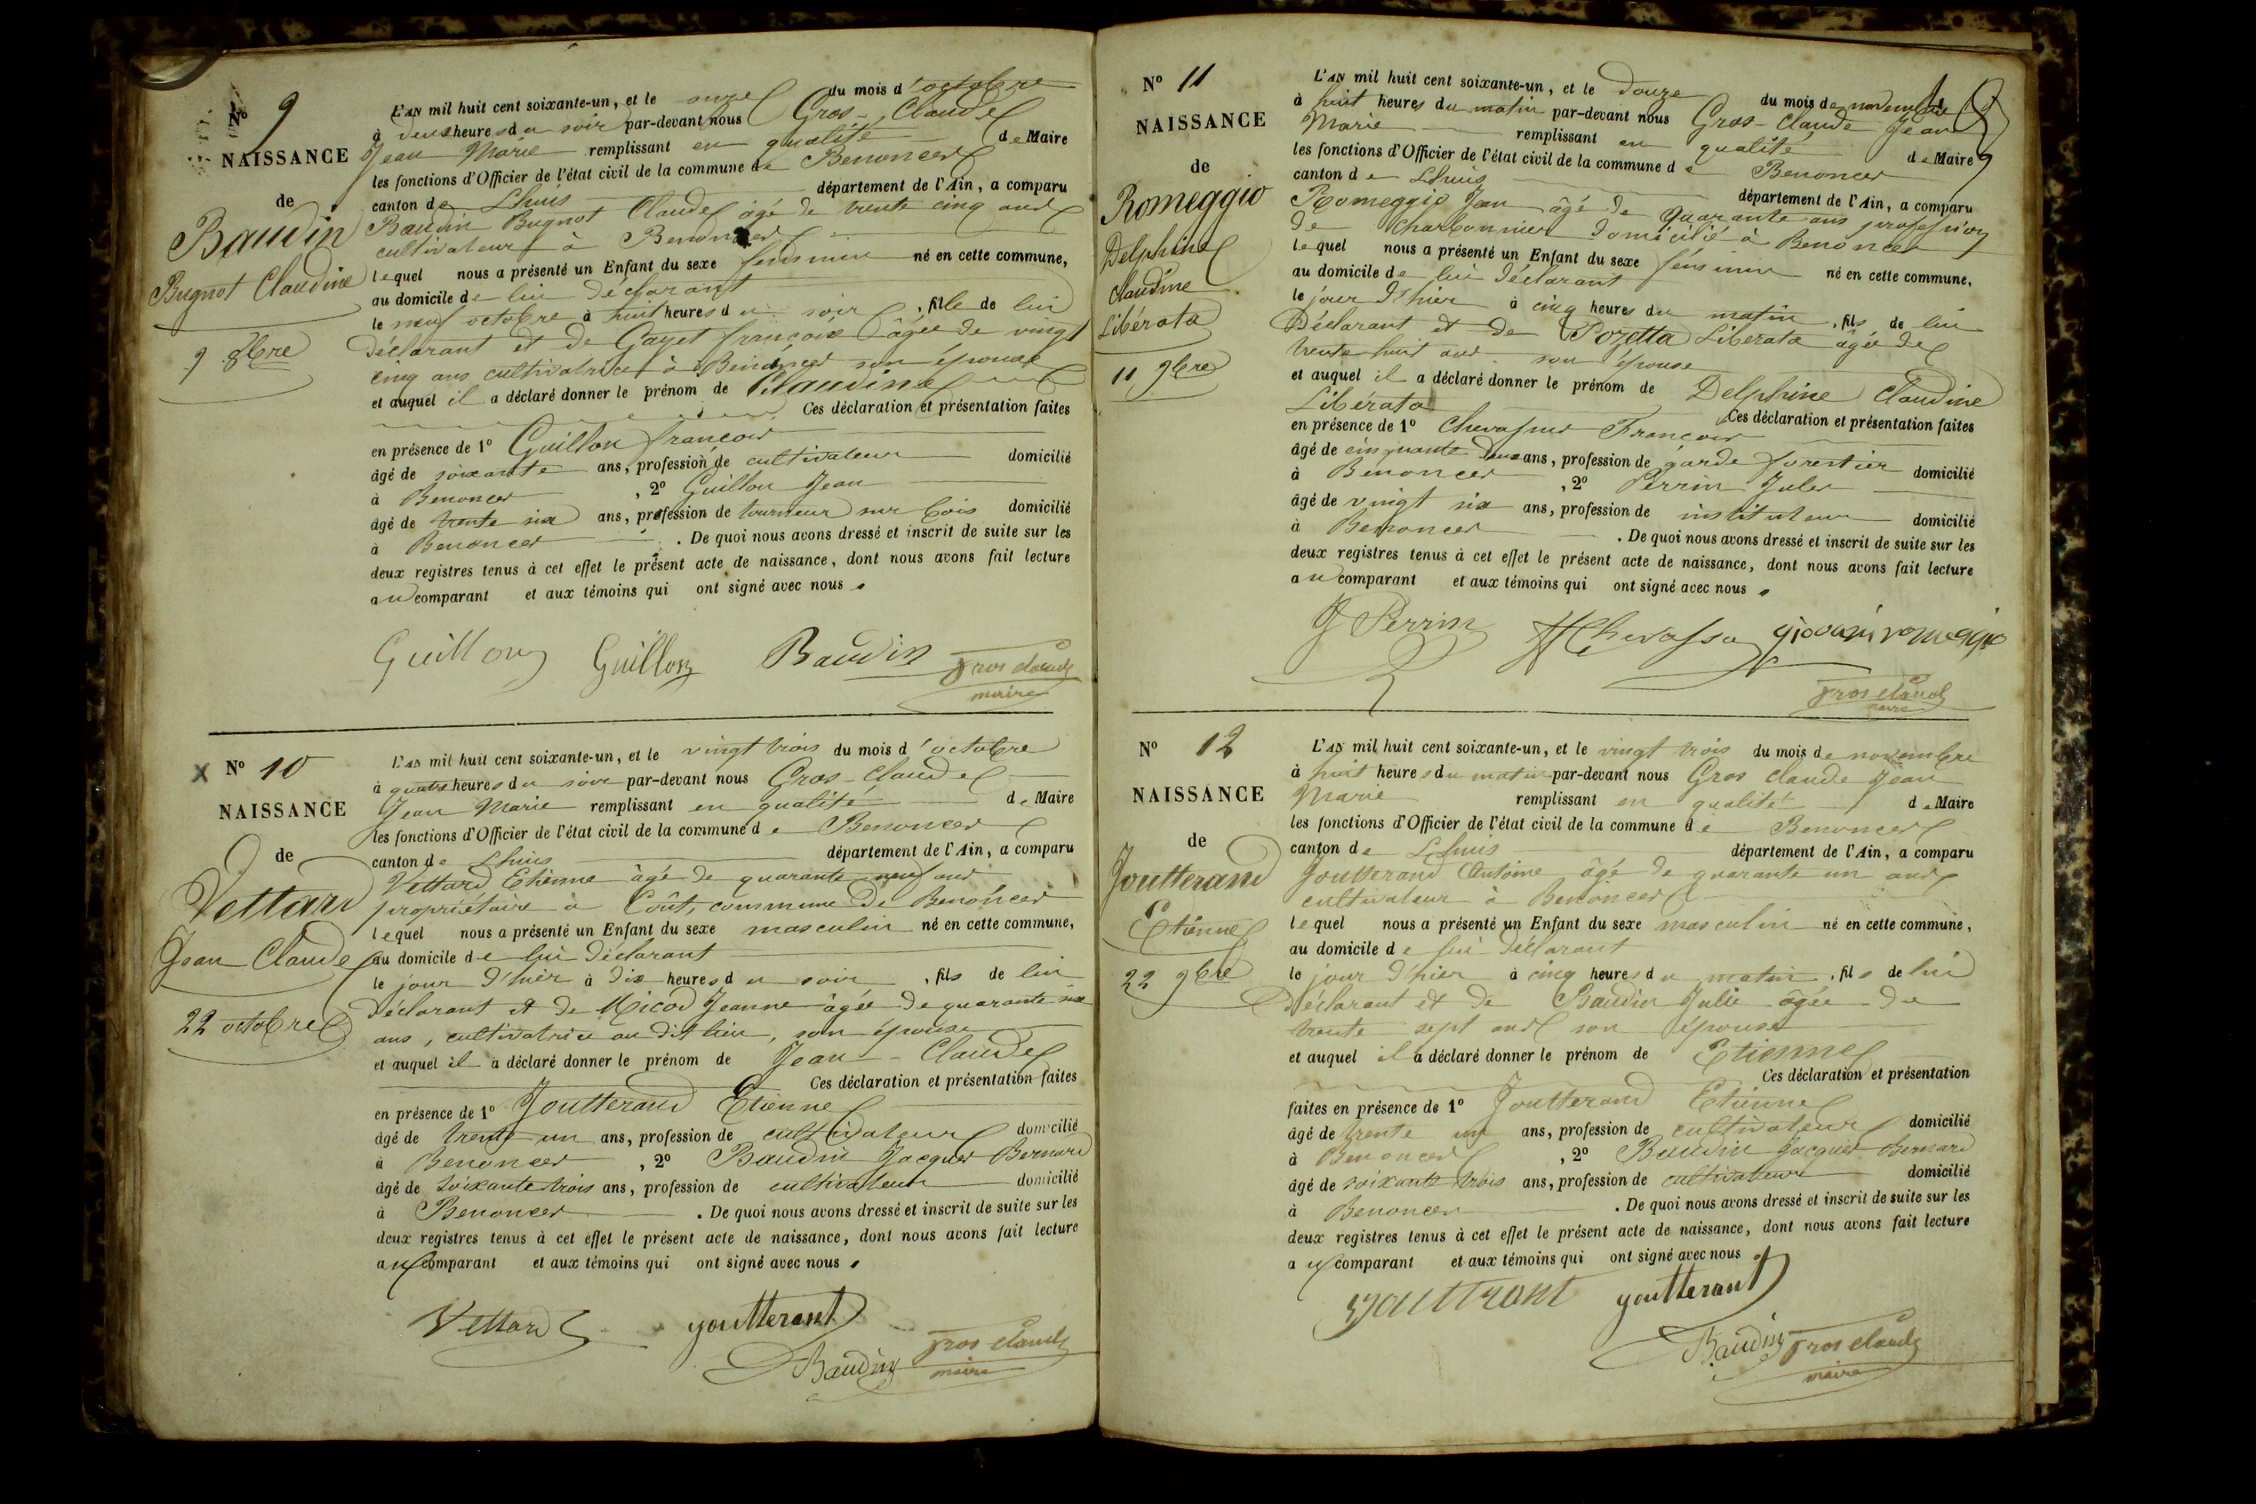 N° 9
NAISSANCE
de
Baudin
Bugnot Claudine
9 8bre
L'AN mil huit cent soixante-un, et le onze du mois d'octobre
à deux heures du soir par-devant nous Gros-Claude
Jean Marie remplissant en qualité de Maire
les fonctions d'Officier de l'état civil de la commune de Benonces
canton de Lhuis département de l'Ain, a comparu
Baudin Bugnot Claude âgé de trente cinq ans
cultivateur à Benonces
lequel nous a présenté un Enfant du sexe féminin né en cette commune,
au domicile de lui déclarant
le neuf octobre à huit heures du soir, fille de lui
déclarant et de Gayet françoise âgée de vingt
cinq ans cultivatrice à Benonces son épouse
et auquel il a déclaré donner le prénom de Claudine
Ces déclaration et présentation faites
en présence de 1° Guillon françois
âgé de soixante ans, profession de cultivateur domicilié
à Benonces, 2° Guillon Jean
âgé de trente six ans, profession de tourneur sur bois domicilié
à Benonces. De quoi nous avons dressé et inscrit de suite sur les
deux registres tenus à cet effet le présent acte de naissance, dont nous avons fait lecture
au comparant et aux témoins qui ont signé avec nous.
Guillon Guillon Baudin Gros Claude
maire
N° 10
NAISSANCE
de
Vettard
Jean Claude
22 octobre
L'AN mil huit cent soixante-un, et le vingt trois du mois d'octobre
à quatre heures du soir par-devant nous Gros-Claude
Jean Marie remplissant en qualité de Maire
les fonctions d'Officier de l'état civil de la commune de Benonces
canton de Lhuis département de l'Ain, a comparu
Vettard Etienne âgé de quarante neuf ans
propriétaire à Coût, commune de Benonces
lequel nous a présenté un Enfant du sexe masculin né en cette commune,
au domicile de lui déclarant
le jour d'hier à dix heures du soir, fils de lui
déclarant et de Micod Jeanne âgée de quarante six
ans, cultivatrice au dit lieu, son épouse
et auquel il a déclaré donner le prénom de Jean-Claude
Ces déclaration et présentation faites
en présence de 1° Joutterand Etienne
âgé de trente un ans, profession de cultivateur domicilié
à Benonces, 2° Baudin Jacques Bernard
âgé de soixante trois ans, profession de cultivateur domicilié
à Benonces. De quoi nous avons dressé et inscrit de suite sur les
deux registres tenus à cet effet le présent acte de naissance, dont nous avons fait lecture
au comparant et aux témoins qui ont signé avec nous.
Vettard goutterant
Baudin Gros Claude
maire
N° 11
NAISSANCE
de
Romeggio
Delphine
Claudine
Libérata
11 9bre
L'AN mil huit cent soixante-un, et le douze du mois de novembre
à huit heures du matin par-devant nous Gros-Claude Jean
Marie remplissant en qualité de Maire
les fonctions d'Officier de l'état civil de la commune de Benonces
canton de Lhuis département de l'Ain, a comparu
Romeggio Jean âgé de quarante ans profession
de charbonnier domicilié à Benonces
lequel nous a présenté un Enfant du sexe féminin né en cette commune,
au domicile de lui déclarant
le jour d'hier à cinq heures du matin, fils de lui
déclarant et de Pozetta Liberata âgée de
trente huit ans son épouse
et auquel il a déclaré donner le prénom de Delphine Claudine
Libérata Ces déclaration et présentation faites
en présence de 1° Chevassus François
âgé de cinquante deux ans, profession de garde forestier domicilié
à Benonces, 2° Perrin Jules
âgé de vingt six ans, profession de instituteur domicilié
à Benonces. De quoi nous avons dressé et inscrit de suite sur les
deux registres tenus à cet effet le présent acte de naissance, dont nous avons fait lecture
au comparant et aux témoins qui ont signé avec nous.
J Perrin Chevassu giovani romeggio
Gros Claude
maire
N° 12
NAISSANCE
de
Joutterand
Etienne
22 9bre
L'AN mil huit cent soixante-un, et le vingt trois du mois de novembre
à huit heures du matin par-devant nous Gros Claude Jean
Marie remplissant en qualité de Maire
les fonctions d'Officier de l'état civil de la commune de Benonces
canton de Lhuis département de l'Ain, a comparu
Joutterand Antoine âgé de quarante un ans
cultivateur à Benonces
lequel nous a présenté un Enfant du sexe masculin né en cette commune,
au domicile de lui déclarant
le jour d'hier à cinq heures du matin, fils de lui
déclarant et de Baudin Julie âgée de
trente sept ans son épouse
et auquel il a déclaré donner le prénom de Etienne
Ces déclaration et présentation
faites en présence de 1° Joutterand Etienne
âgé de trente un ans, profession de cultivateur domicilié
à Benonces, 2° Baudin Jacques Bernard
âgé de soixante trois ans, profession de cultivateur domicilié
à Benonces. De quoi nous avons dressé et inscrit de suite sur les
deux registres tenus à cet effet le présent acte de naissance, dont nous avons fait lecture
au comparant et aux témoins qui ont signé avec nous.
Jouttrant goutterant
Baudin Gros Claude
maire